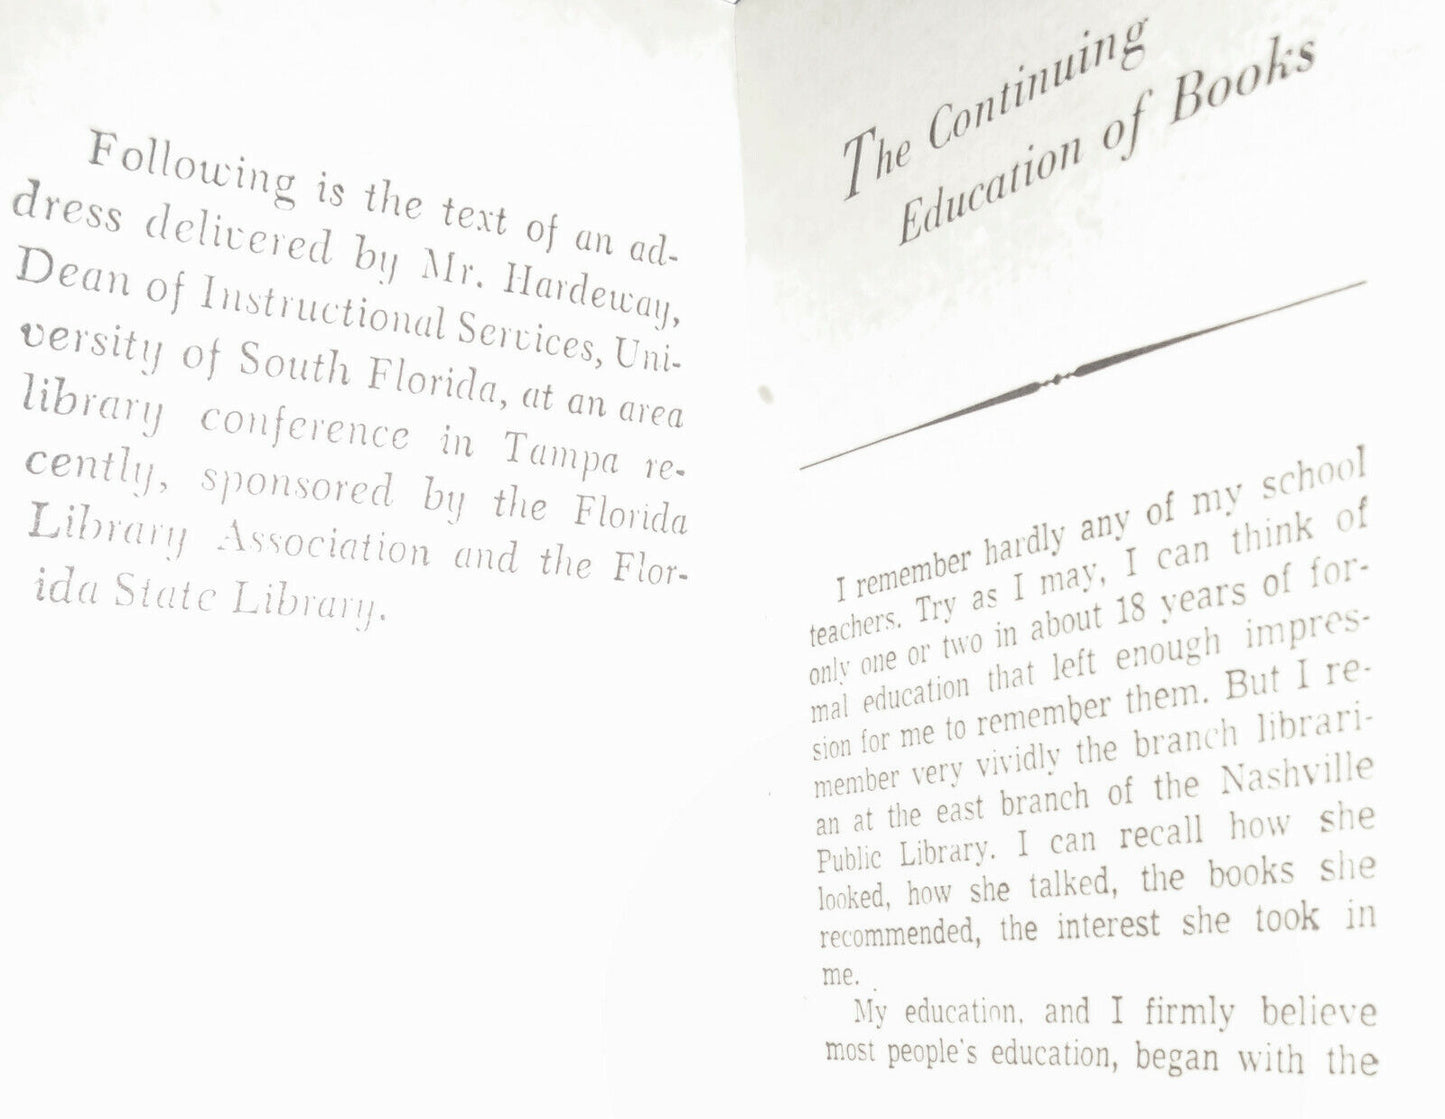 Following is the text of an ad-
dress delivered by Mr. Hardeway,
Dean of Instructional Services, Uni-
versity of South Florida, at an area
library conference in Tampa re-
cently, sponsored by the Florida
Library Association and the Flor-
ida State Library.
The Continuing
Education of Books
I remember hardly any of my school
teachers. Try as I may, I can think of
only one or two in about 18 years of for-
mal education that left enough impres-
sion for me to remember them. But I re-
member very vividly the branch librari-
an at the east branch of the Nashville
Public Library. I can recall how she
looked, how she talked, the books she
recommended, the interest she took in
me.
My education, and I firmly believe
most people's education, began with the